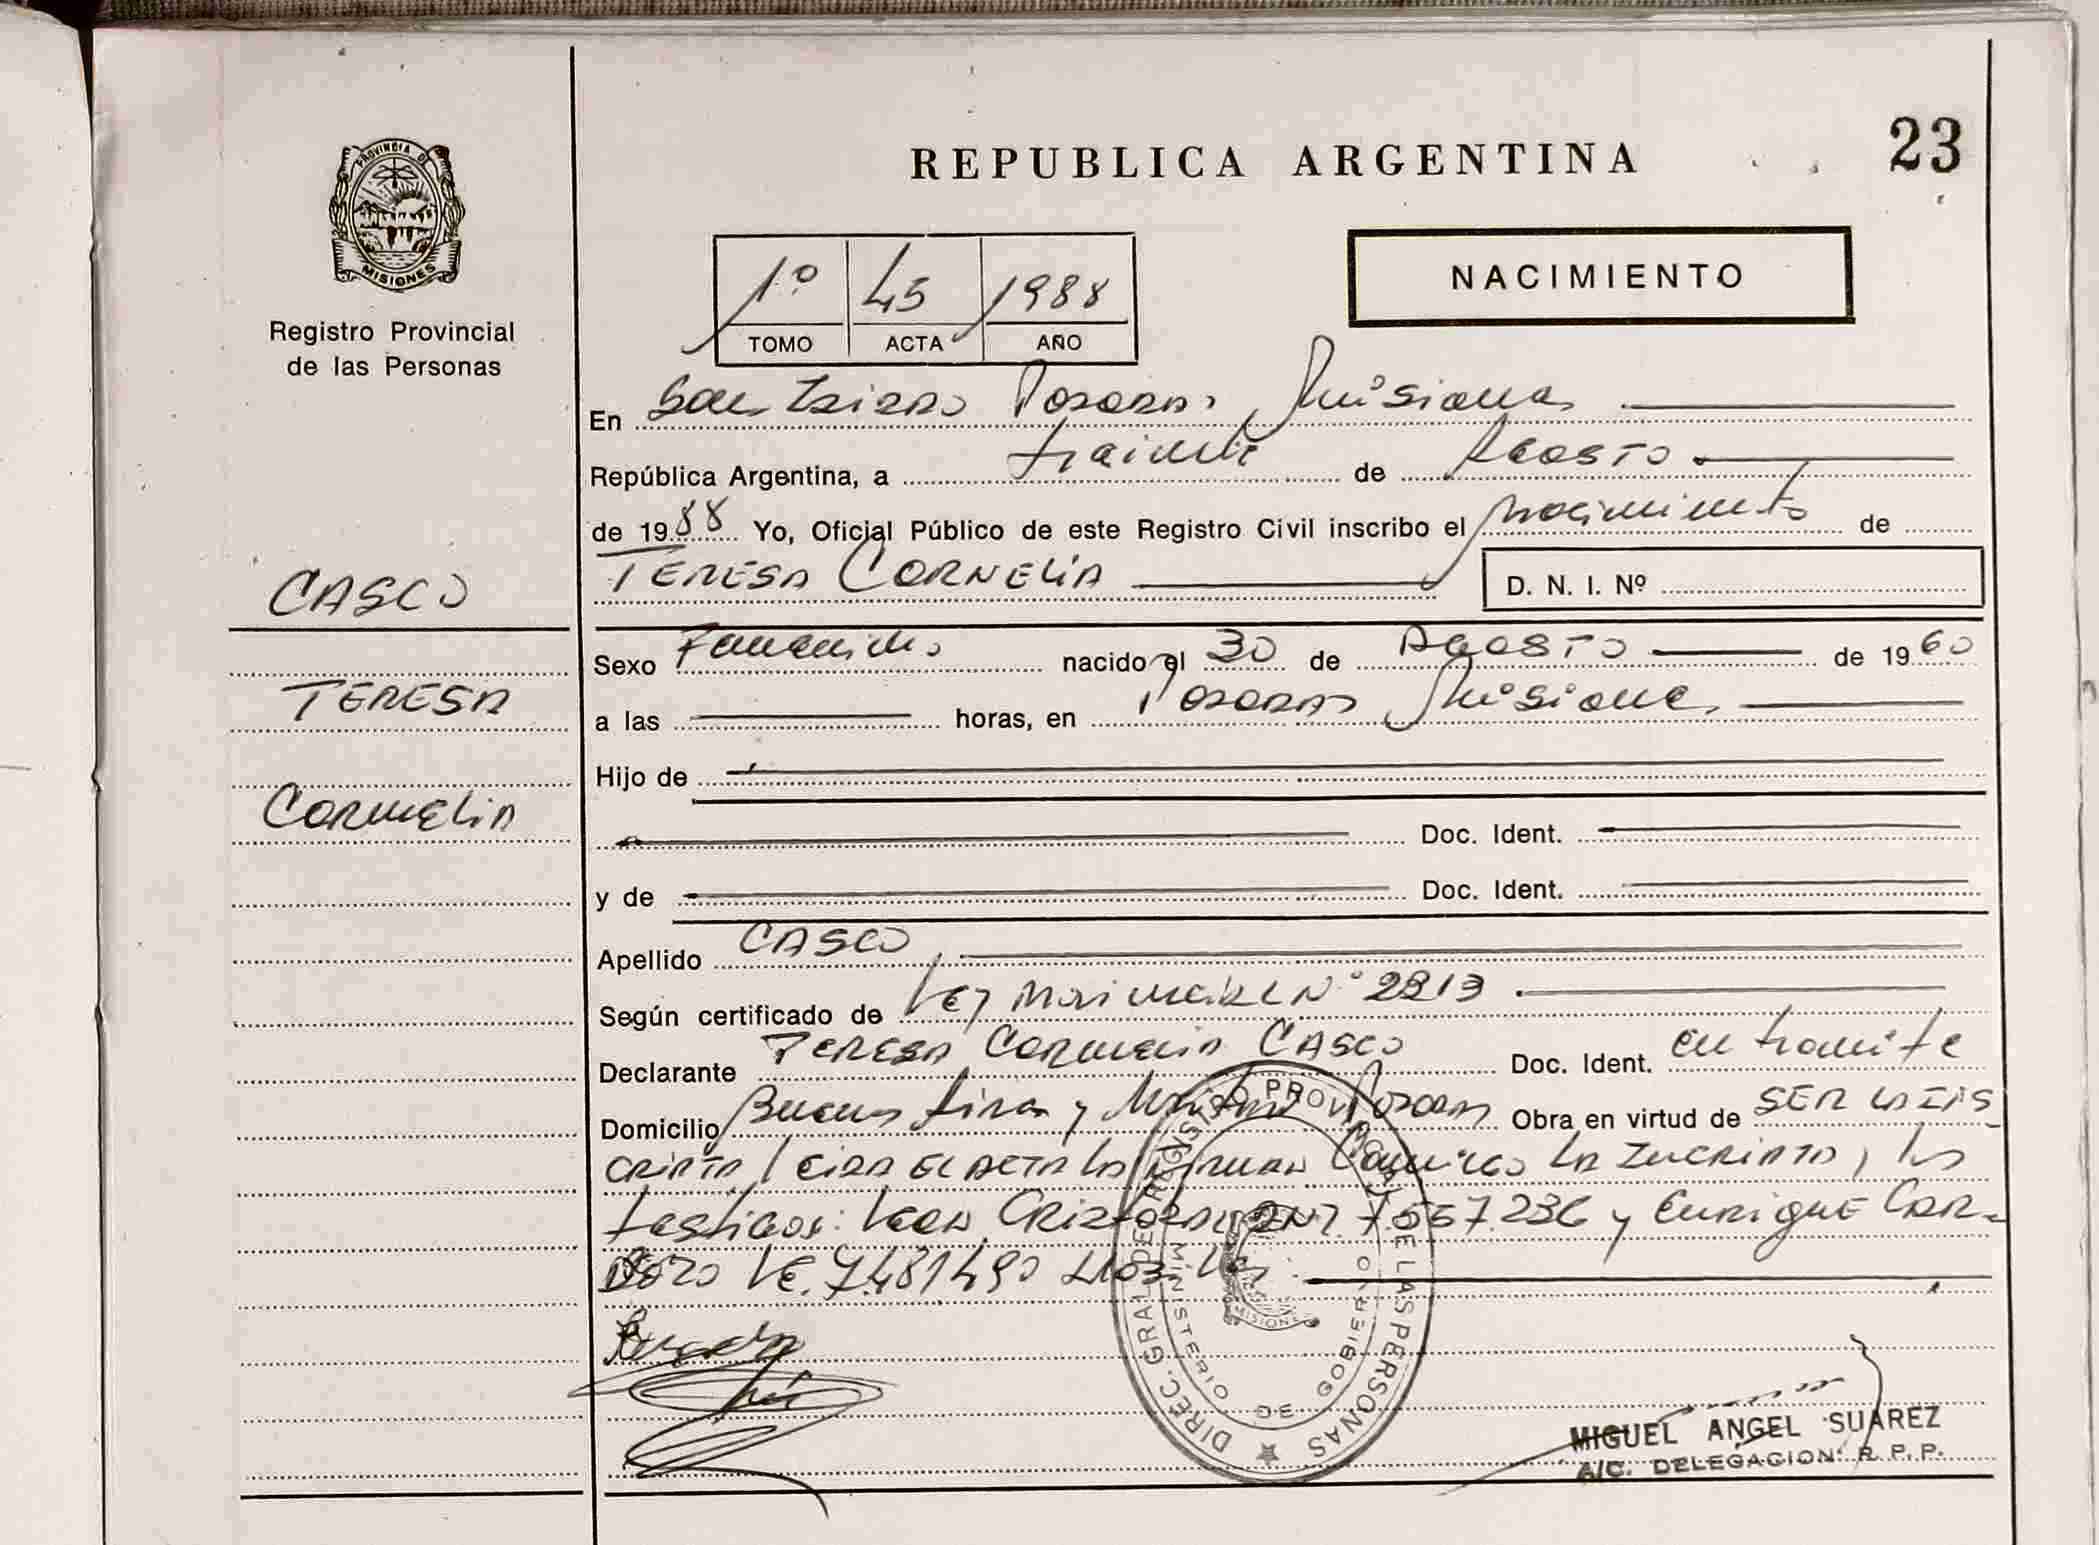 23
REPUBLICA ARGENTINA
PROVINCIA DE
MISIONES
Registro Provincial
de las Personas
NACIMIENTO
1º 45 1988
TOMO ACTA AÑO
En San Isidro Posadas, Misiones
República Argentina, a treinta de Agosto
de 1988 Yo, Oficial Público de este Registro Civil inscribo el nacimiento de
TERESA CORNELIA
D. N. I. Nº
CASCO
TERESA
CORNELIA
Sexo Femenino nacido el 30 de AGOSTO de 1960
a las horas, en Posadas Misiones
Hijo de
Doc. Ident.
y de Doc. Ident.
Apellido CASCO
Según certificado de Ley Nº 2213
Declarante TERESA CORNELIA CASCO Doc. Ident. en tramite
Domicilio Buenos Aires y Posadas Obra en virtud de SER LA INS
CRIPTA, LEIDA EL ACTA LA FIRMAN CONMIGO LA INSCRIPTA, los
testigos: 7.557.236 y ENRIQUE CAR-
DOZO LE. 7.481.490
DIREC. GRAL. DE REGISTRO PROVINCIAL DE LAS PERSONAS
MINISTERIO DE GOBIERNO
MISIONES
MIGUEL ANGEL SUAREZ
A/C. DELEGACION R.P.P.